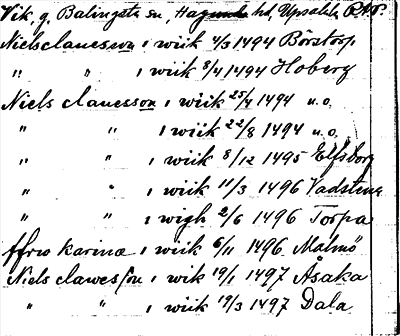 Vik, g. Balingsta sn, Hagunda hd, Upsala l. R.A.P.
Nielsclauesson i wiik 4/3 1494 Börstorp
" " i wiik 8/4 1494 Hoberg
Niels clauesson i wiik 25/4 1494 u.o.
" " i wiik 22/8 1494 u.o.
" " i wiik 8/12 1495 Elfsborg
" " i wiik 11/3 1496 Vadstena
" " i wigh 2/6 1496 Torpa
ffrw karinæ i wiik 6/11 1496 Malmö
Niels clawesson i wik 19/1 1497 Åsaka
" " i wiik 19/3 1497 Dala